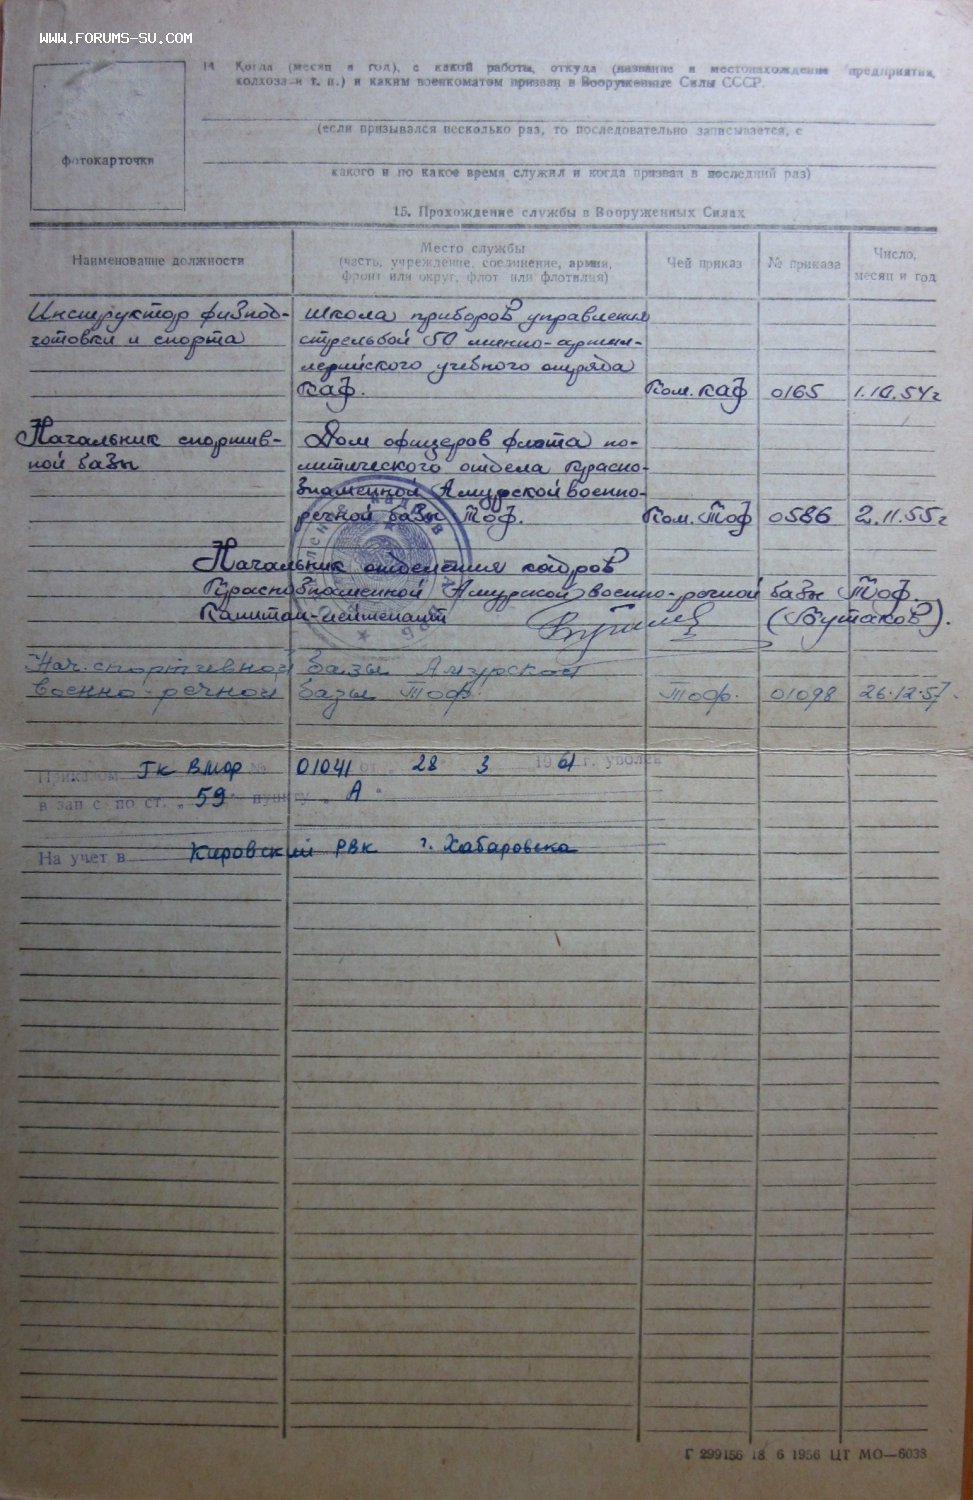 WWW.FORUMS-SU.COM
фотокарточки
14 Когда (месяц и год), с какой работы, откуда (название и местонахождение предприятия,
колхоза и т. п.) и каким военкоматом призван в Вооруженные Силы СССР.
(если призывался несколько раз, то последовательно записывается, с
какого и по какое время служил и когда призван в последний раз)
15. Прохождение службы в Вооруженных Силах
Наименование должности
Место службы
(часть, учреждение, соединение, армия,
фронт или округ, флот или флотилия)
Чей приказ
№ приказа
Число,
месяц и год
Инструктор физпод- школа приборов управления
готовки и спорта стрельбой 50 минно-артил-
лерийского учебного отряда
КАФ. Ком. КАФ 0165 1.10.54г
Начальник спортив- Дом офицеров флота по-
ной базы литического отдела Красно-
знаменной Амурской военно-
речной базы ТОФ. Ком. ТОФ 0586 2.11.55г
Начальник отделения кадров
Краснознаменной Амурской военно-речной базы ТОФ.
Капитан-лейтенант (Бутаков).
Нач. спортивной базы Амурской
военно-речной базы ТОФ. ТОФ. 01098 26.12.57.
Приказом ГК ВМФ № 01041 от „ 28 3 1961 г. уволен
в зап с по ст. „ 59 " пункту „ А "
На учет в Кировский РВК г. Хабаровска
Г 299156 18 6 1956 ЦТ МО—6038